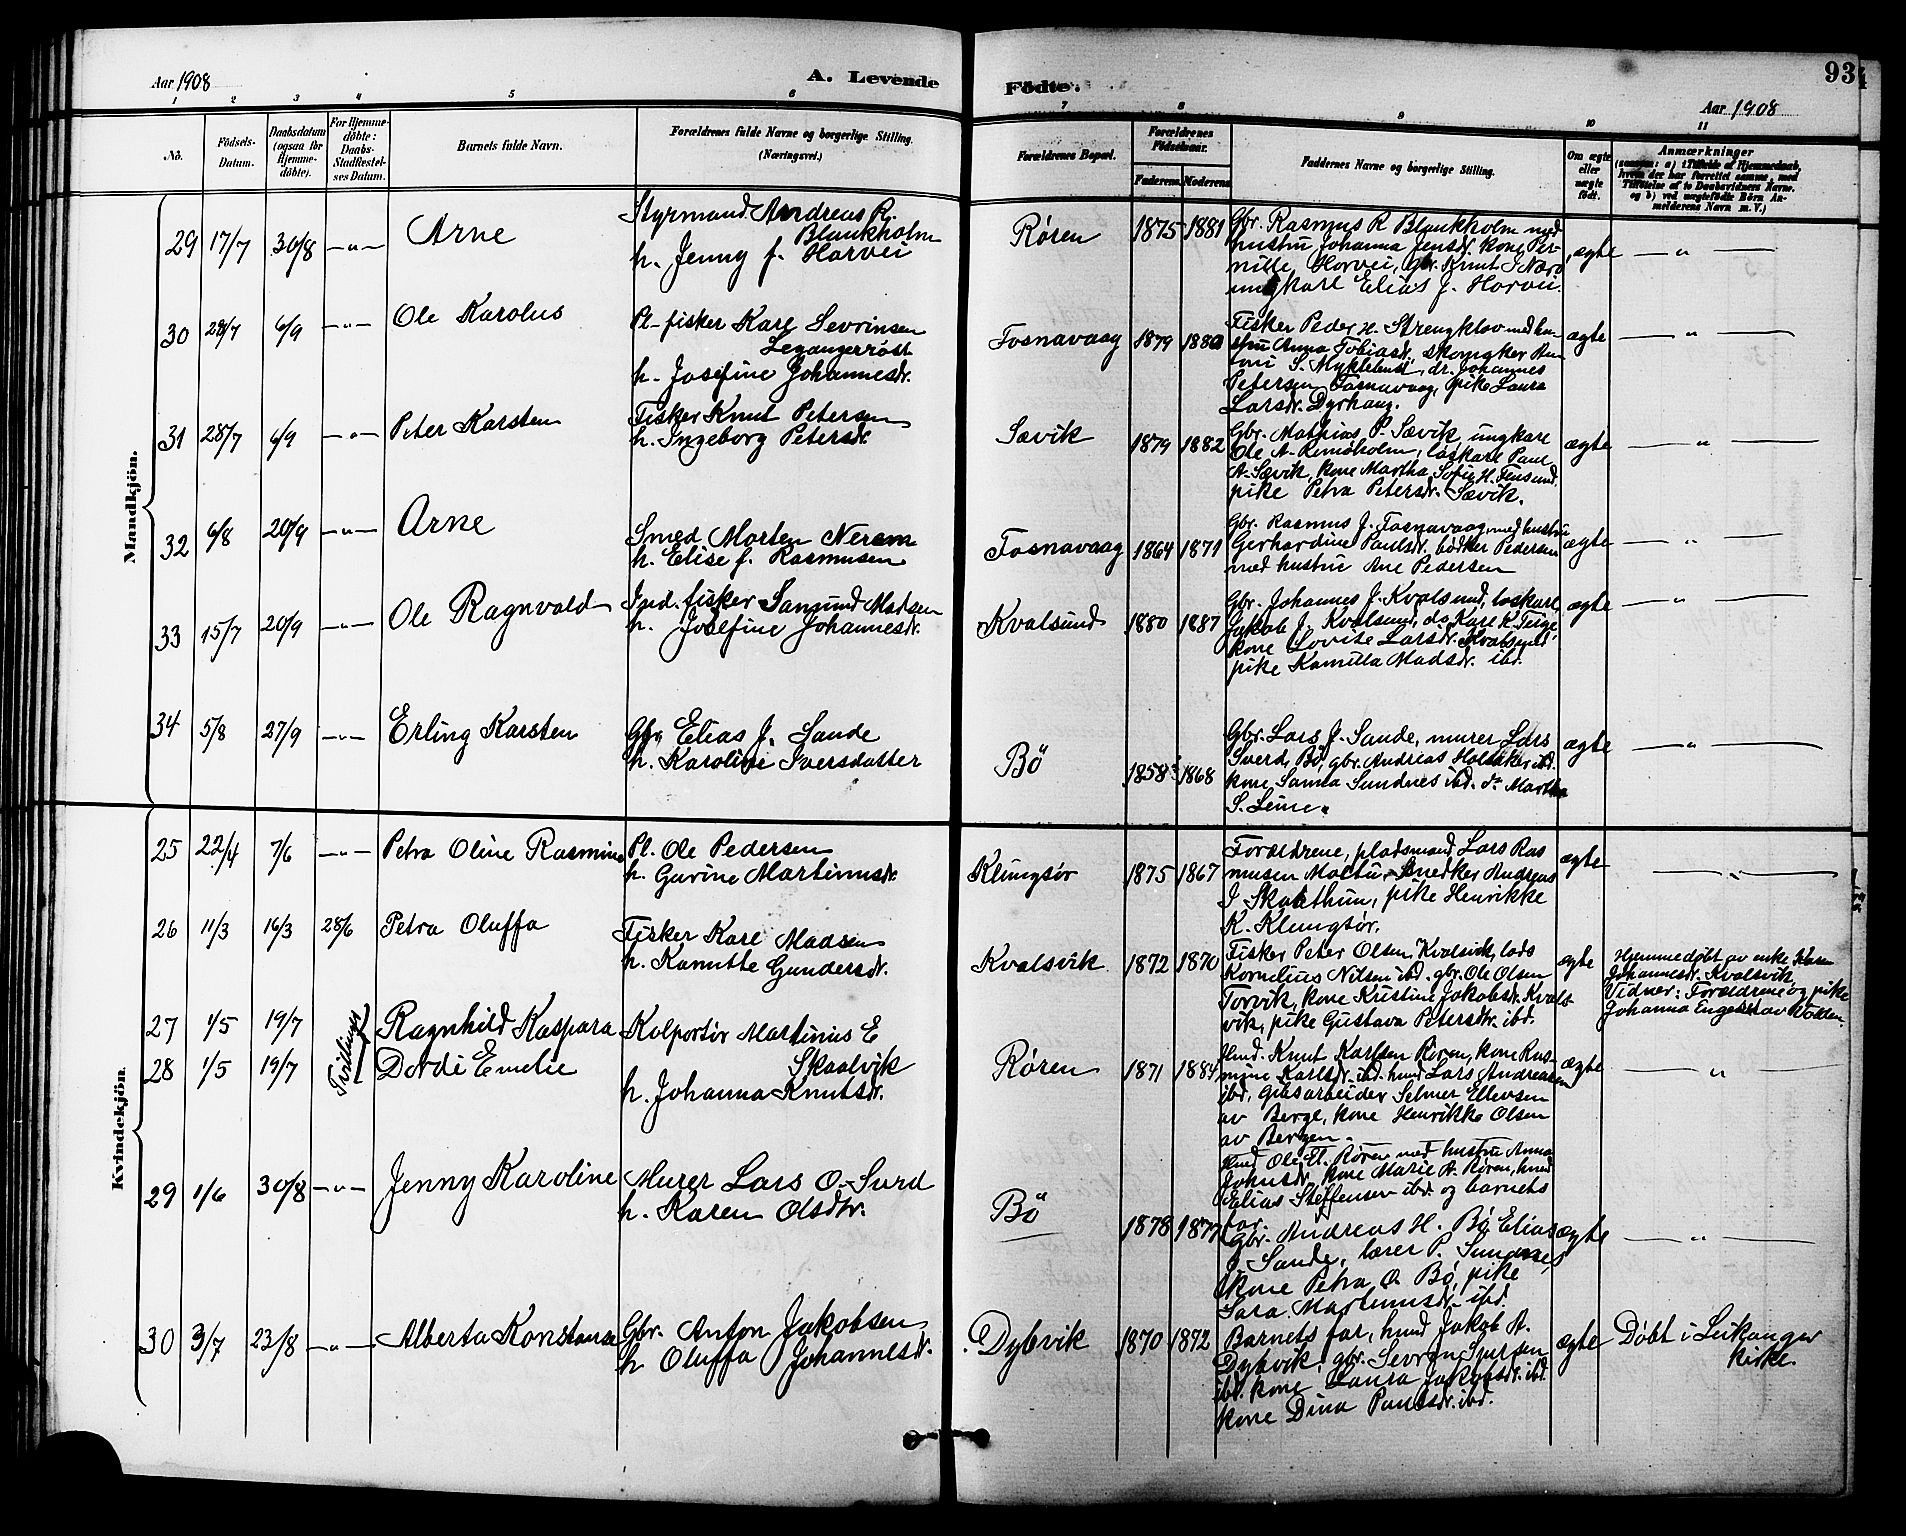 Aar 1908
A. Levende
Födte.
93
Aar 1908
1 2 3 4 5 6 7 8 9 10 11
No.
Födsels-
Datum.
Daabsdatum
(ogsaa for
Hjemme-
döbte).
For Hjemme-
döbte:
Daabs-
Stadfæstel-
ses Datum.
Barnets fulde Navn.
Forældrenes fulde Navne og borgerlige Stilling.
(Næringsvei.)
Forældrenes Bopæl.
Forældrenes
Födselsaar.
Faderens. Moderens.
Faddernes Navne og borgerlige Stilling.
Om ægte
eller
uægte
født.
Anmærkninger
Mandkjön.
29 17/7 30/8 -„- Arne
Styrmand Andreas R.
Blankholm
h. Jenny f. Horvei
Røren 1875 1881
Gbr. Rasmus R Blankholm med
hustru Johanna Jensdr. kone Per-
nille Horvei, gbr. Knut
ungkarl Elias J. Horvei.
ægte -„-
30 28/7 6/9 -„- Ole Karolus
Pl-fisker Karl Sevrinsen
h. Josefine Johannesdr.
Fosnavaag 1879 1880
Fisker Peder H. med hu-
stru Anna Tobiasdr.,
toni S. Myklebust, dr. Johannes
Petersen Fosnavaag, pike Laura
Larsdr. Dyrhaug.
ægte -„-
31 28/7 6/9 -„- Peter Karsten
Fisker Knut Petersen
h. Ingeborg Petersdr.
Sævik 1879 1882
Gbr. Mathias P. Sævik, ungkarl
Ole A. Remøholm, løskarl Paul
A. Sævik, kone Martha Sofie H.
pike Petra Petersdr. Sævik.
ægte -„-
32 6/8 20/9 -„- Arne
Smed Morten Nerem
h. Elise f. Rasmusen
Fosnavaag 1864 1871
Gbr. Rasmus J. Fosnavaag, med hustru
Gerhardine Paulsdr. bødker Pedersen
med hustru Ane Pedersen
ægte -„-
33 15/7 20/9 -„- Ole Ragnvald
Ind. fisker Samund Madsen
h. Josefine Johannesdr.
Kvalsund 1880 1887
Gbr. Johannes J. Kvalsund, løskarl
Jakob J. Kvalsund, do Karl K.
kone Lovise Larsdr. Kvalsund
pike Kamilla Madsdr. ibd.
ægte -„-
34 5/8 27/9 -„- Erling Karsten
Gbr. Elias J. Sande
h. Karoline Iversdatter
Bö 1858 1868
Gbr. Lars J. Sande, murer Lars
Bö, gbr. Andreas ibd.
kone Sanna Sundnes ibd. do Martha
S. Leine.
ægte -„-
Kvindekjön.
25 22/4 7/6 -„- Petra Oline Rasmine
Pl. Ole Pedersen
h. Gurine Martinusdr.
Klungsør 1875 1867
Forældrene, pladsmand Lars Ras
musen Moltu, snedker Andreas
J pike Henrikke
K. Klungsør.
ægte -„-
26 11/3 16/3 28/6 Petra Oluffa
Fisker Karl Madsen
h. Kanutte Gundersdr.
Kvalsvik 1872 1870
Fisker Peter Olsen Kvalsvik, lods
Kornelius Nilsen ibd. gbr. Ole Olsen
Torvik, kone Kristine Jakobsdr. Kvals
vik, pike Gustava Petersdtr. ibd.
ægte
Hjemmedøbt av enke
Johannesdr. Kvalsvik
Vidner: Forældrene og pike
Johanna
27 1/5 19/7 Ragnhild Kaspara
28 1/5 19/7 Dordi Emelie
Tvillinger
Kolportør Martinius E
Skaalvik
h. Johanna Knutsdr.
Røren 1871 1884
Hmd. Knut Karlsen Røren, kone Ras-
mine Karlsdr. ibd. hmd Lars Andreasen
ibd, Selmer Ellevsen
av Berge, kone Henrikke Olsen
av Bergen.
Hmd Ole El. Røren med hustru Anna
Johnsdr., kone Marie A. Røren, hmd
Elias Steffensen ibd. og barnets
far.
ægte -„-
29 1/6 30/8 -„- Jenny Karoline
Murer Lars O.
h. Karen Olsdtr.
Bö 1878 1877
Gbr. Andreas H. Bö, Elias
J. Sande, lærer P. Sundnes
kone Petra O. Bö, pike
Sara Martinusdr. ibd.
ægte -„-
30 3/7 23/8 -„- Alberta Konstanse
Gbr. Anton Jakobsen
h Oluffa Johannesdr.
Dybvik 1870 1872
Barnets far, hmd Jakob A.
Dybvik, gbr. Sevrin Iversen
ibd. kone Laura Jakobsdr. ibd.
kone Dina Paulsdr. ibd.
ægte
Døbt i Leikanger
kirke.